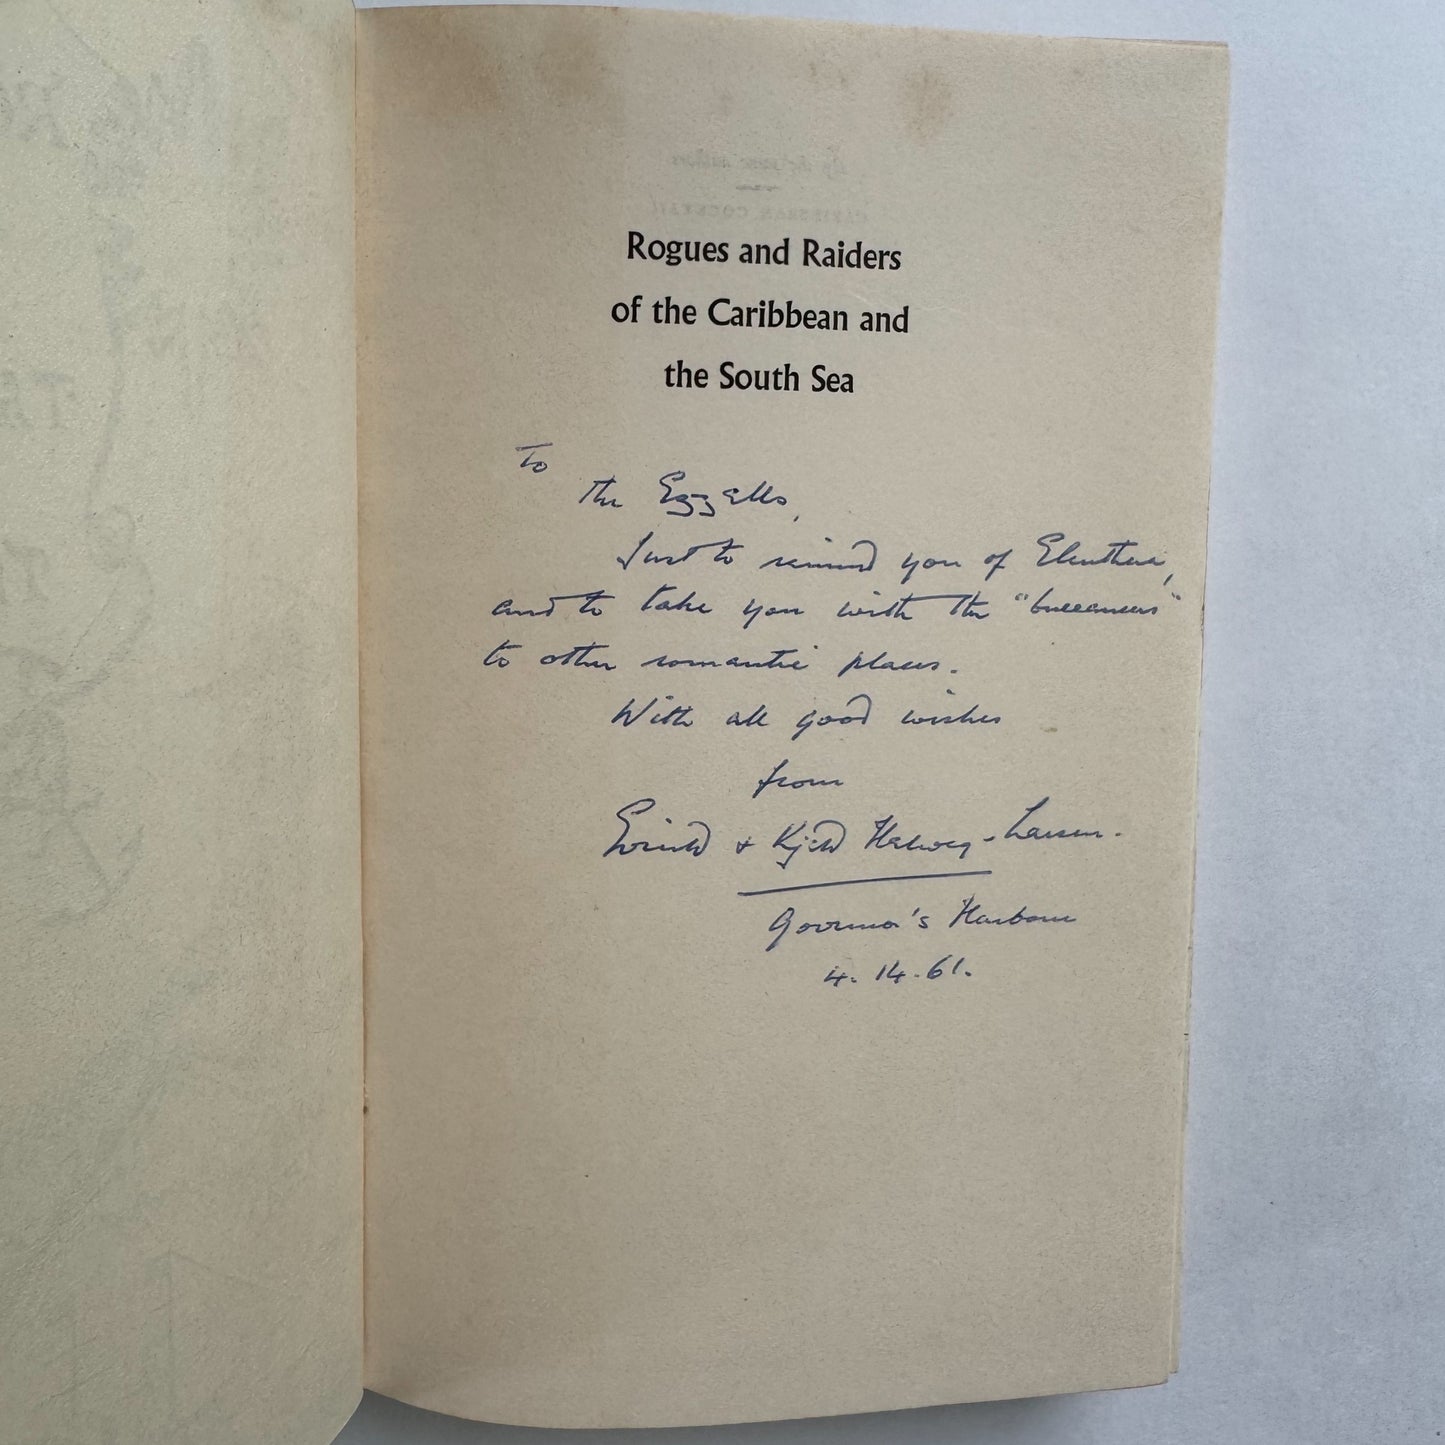 Rogues and Raiders
of the Caribbean and
the South Sea
To
the Ezzells,
Just to remind you of Eleuthera,
and to take you with the "buccaneers"
to other romantic places.
With all good wishes
from
& Kjeld Helweg-Larsen.
Governor's Harbour
4.14.61.